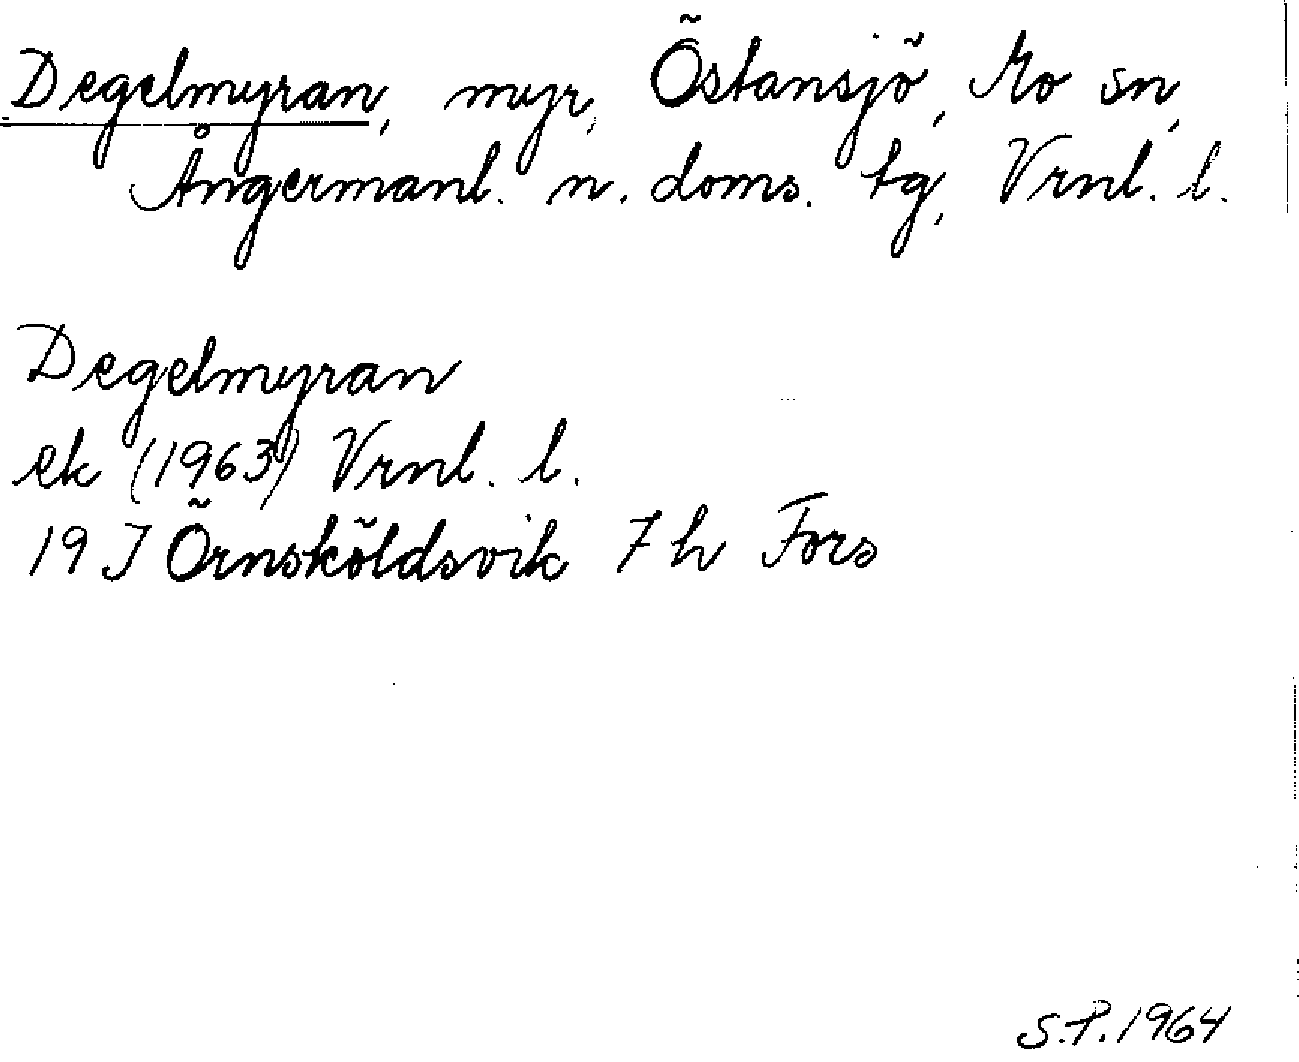 Degelmyran, myr, Östansjö, Mo sn,
Ångermanl. n. doms. tg, Vrnl. l.
Degelmyran
ek (1963) Vrnl. l.
19 J Örnsköldsvik 7 h Fors
S.P. 1964